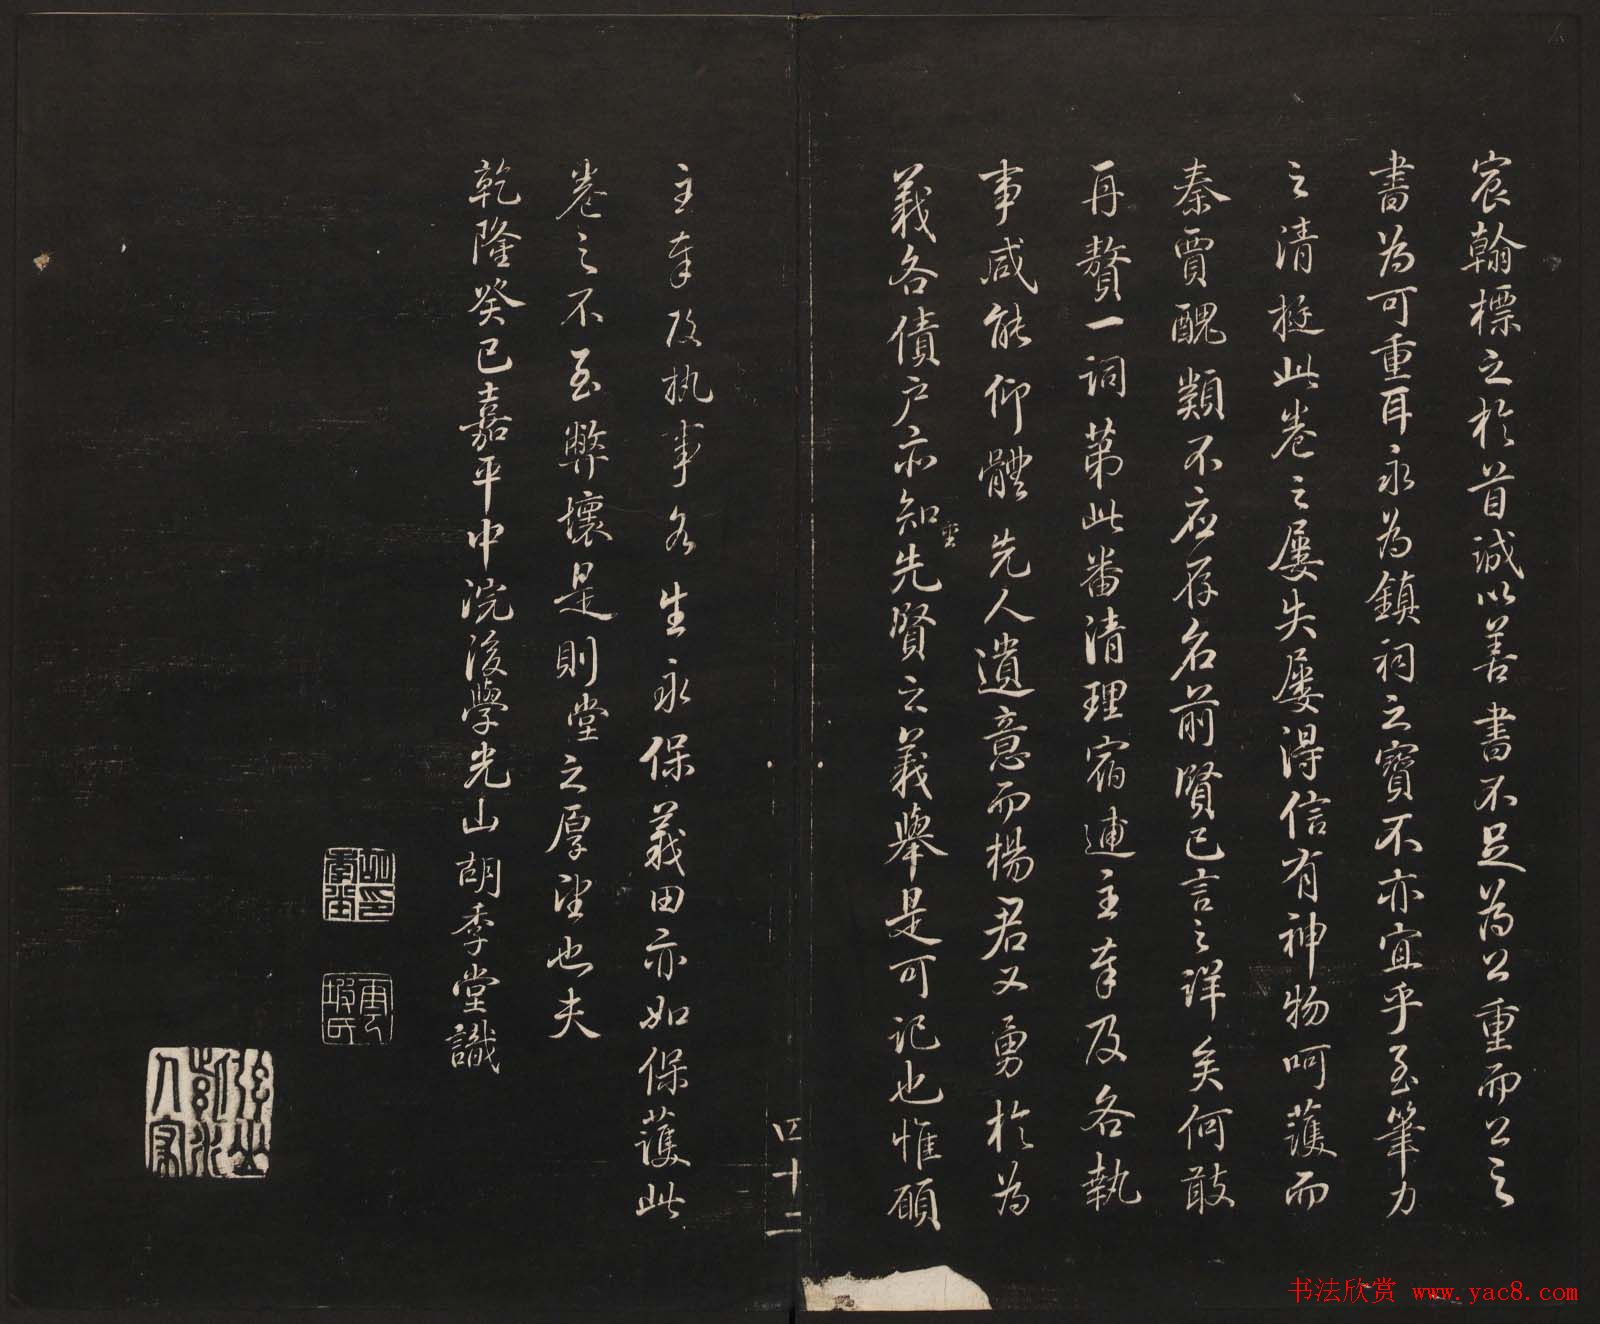 宸翰標之於首誠以善書不足為公重而公之
書為可重耳永為鎮祠之寶不亦宜乎至筆力
之清挺此卷之屢失屢得信有神物呵護而
秦賈醜類不应存名前賢已言之詳矣何敢
再贅一詞第此番清理宿逋主奉及各執
事咸能仰體先人遺意而楊君又勇於為
義各債户亦知重先賢之義舉是可記也惟願
主奉及执事各生永保義田亦如保護此
卷之不至弊壞是則堂之厚望也夫
乾隆癸巳嘉平中浣後學光山胡季堂識
四十二
书法欣赏 www.yac8.com